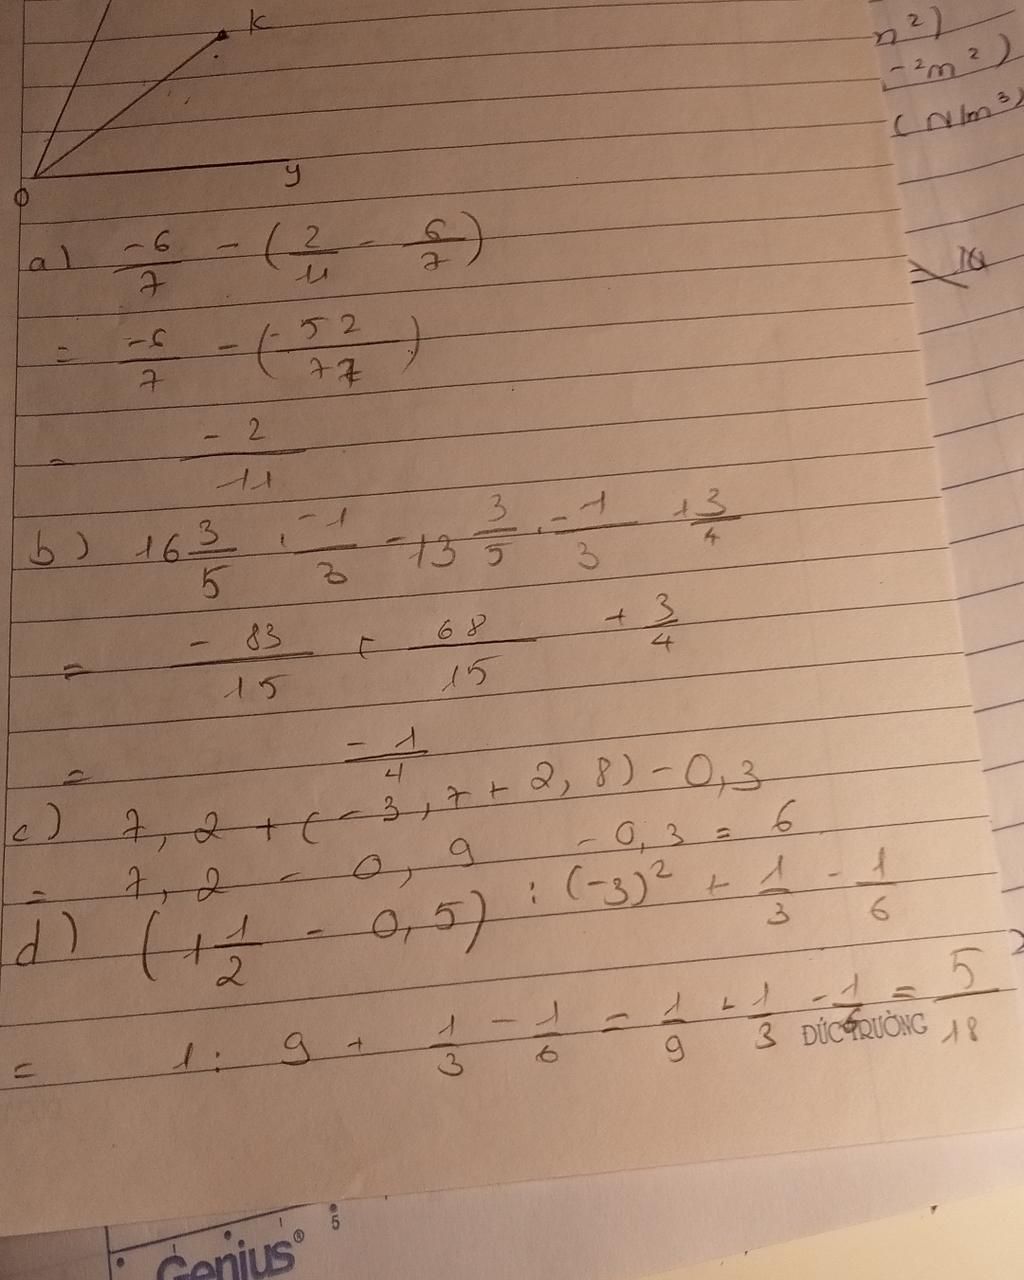 K
O
y
n²)
-²m²)
(N/m³)
a) -6/7 - (2/11 - 6/7)
= -6/7 - (-52/77)
= -2/11
b) 16 3/5 . -1/3 - 13 3/5 . -1/3 + 3/4
= -83/15 + 68/15 + 3/4
= -1/4
c) 7,2 + (-3,7 + 2,8) - 0,3
= 7,2 - 0,9 - 0,3 = 6
d) (1 1/2 - 0,5) : (-3)² + 1/3 - 1/6
= 1 : 9 + 1/3 - 1/6 = 1/9 + 1/3 - 1/6 = 5/18
ĐỨC TRƯỜNG
5
Genius®